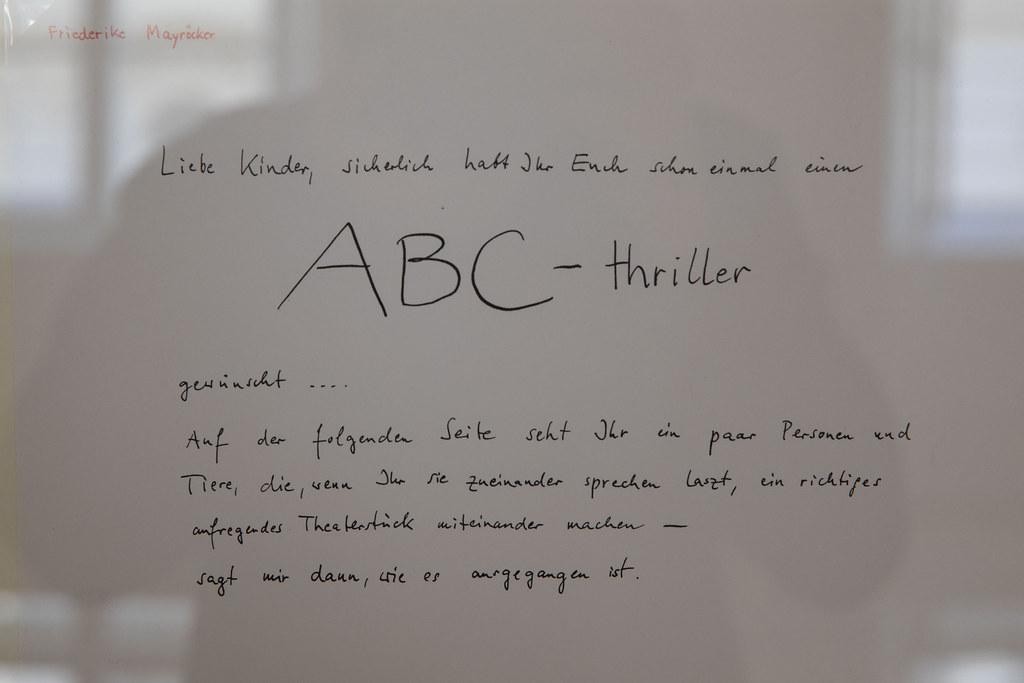 Friederike Mayröcker
Liebe Kinder, sicherlich habt Ihr Euch schon einmal einen
ABC-thriller
gewünscht ....
Auf der folgenden Seite seht Ihr ein paar Personen und
Tiere, die, wenn Ihr sie zueinander sprechen laszt, ein richtiges
aufregendes Theaterstück miteinander machen —
sagt mir dann, wie es ausgegangen ist.